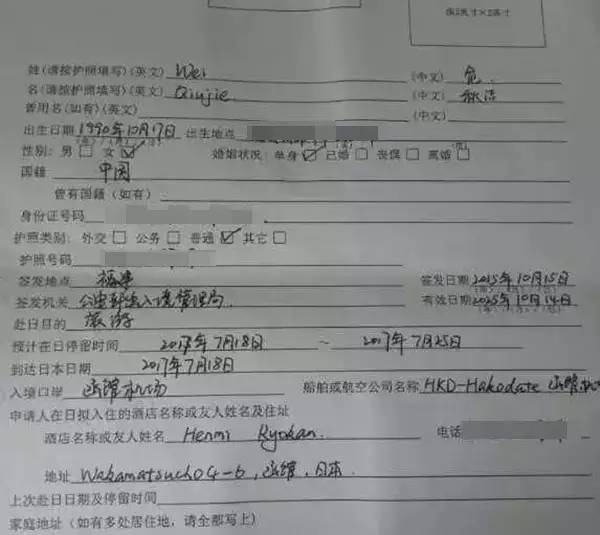 像2英寸×2英寸
姓(请按护照填写)(英文) Wei (中文) 危
名(请按护照填写)(英文) Qiujie (中文) 秋洁
曾用名(如有)(英文) (中文)
出生日期 1990年10月17日 出生地点
性别: 男□ 女☑ 婚姻状况: 单身☑ 已婚□ 丧偶□ 离婚□
国籍 中国
曾有国籍(如有)
身份证号码
护照类别: 外交□ 公务□ 普通☑ 其它□
护照号码
签发地点 福建 签发日期 2015年10月15日
签发机关 公安部出入境管理局 有效日期 2025年10月14日
赴日目的 旅游
预计在日停留时间 2017年7月18日 ~ 2017年7月25日
到达日本日期 2017年7月18日
入境口岸 函馆机场 船舶或航空公司名称 HKD-Hakodate 函馆机
申请人在日拟入住的酒店名称或友人姓名及住址
酒店名称或友人姓名 Henmi Ryokan. 电话
地址 Wakamatsucho 4-6, 函馆, 日本.
上次赴日日期及停留时间
家庭地址(如有多处居住地, 请全部写上)